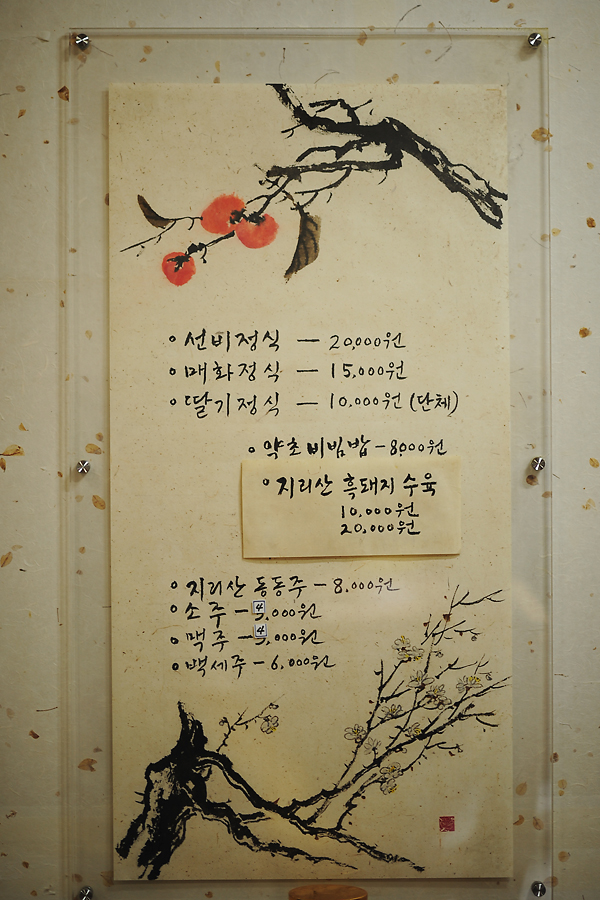 선비정식 — 20,000원
매화정식 — 15,000원
딸기정식 — 10,000원 (단체)
약초비빔밥 - 8000원
지리산 흑돼지 수육
10,000원
20,000원
지리산 동동주 - 8,000원
소주 - 4,000원
맥주 - 4,000원
백세주 - 6,000원